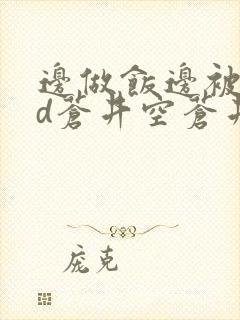 邊做飯邊被
d蒼井空蒼井
庞克